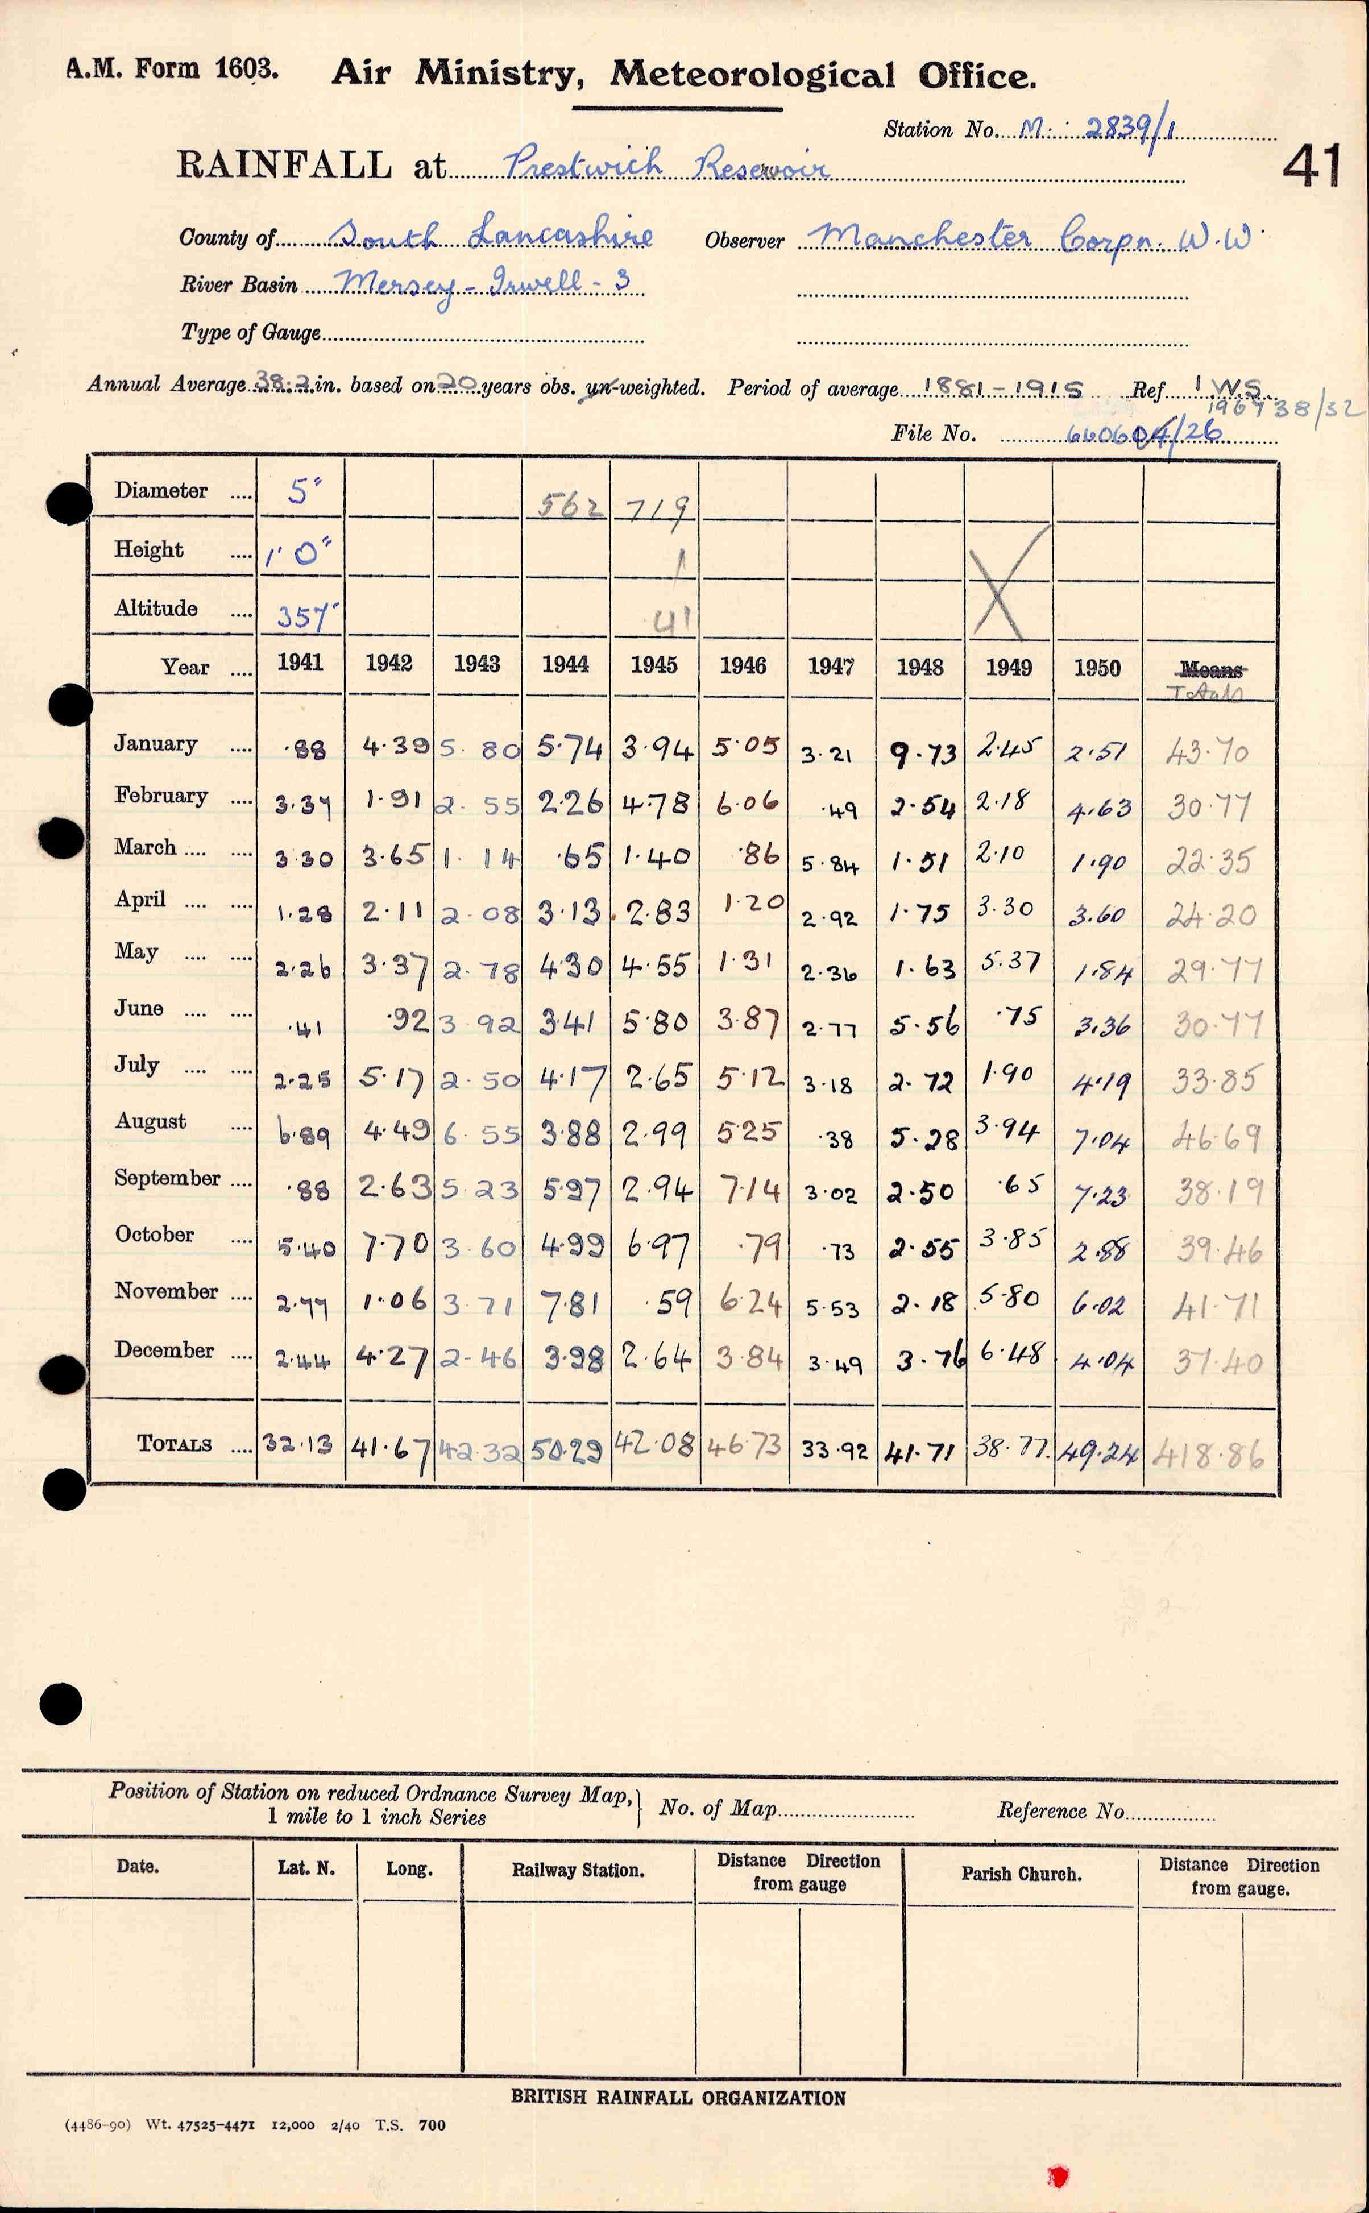 A.M. Form 1603. Air Ministry, Meteorological Office.
Station No. M. 2839/1
41
RAINFALL at Prestwich Reservoir
County of South Lancashire Observer Manchester Corpn. W.W.
River Basin Mersey - Irwell - 3
Type of Gauge
Annual Average 38.2 in. based on 20 years obs. un-weighted. Period of average 1881-1915 Ref. I.W.S.
1967 38/32
File No. 660604/26
Diameter .... 5" 562 719
Height .... 1' 0" 1
Altitude .... 357' 41 X
Year .... 1941 1942 1943 1944 1945 1946 1947 1948 1949 1950 Means
Totals
January .... .88 4.39 5.80 5.74 3.94 5.05 3.21 9.73 2.45 2.51 43.70
February .... 3.37 1.91 2.55 2.26 4.78 6.06 .49 2.54 2.18 4.63 30.77
March .... .... 3.30 3.65 1.14 .65 1.40 .86 5.84 1.51 2.10 1.90 22.35
April .... .... 1.28 2.11 2.08 3.13 2.83 1.20 2.92 1.75 3.30 3.60 24.20
May .... .... 2.26 3.37 2.78 4.30 4.55 1.31 2.36 1.63 5.37 1.84 29.77
June .... .... .41 .92 3.92 3.41 5.80 3.87 2.77 5.56 .75 3.36 30.77
July .... .... 2.25 5.17 2.50 4.17 2.65 5.12 3.18 2.72 1.90 4.19 33.85
August .... 6.89 4.49 6.55 3.88 2.99 5.25 .38 5.28 3.94 7.04 46.69
September .... .88 2.63 5.23 5.97 2.94 7.14 3.02 2.50 .65 7.23 38.19
October .... 5.40 7.70 3.60 4.99 6.97 .79 .73 2.55 3.85 2.88 39.46
November .... 2.77 1.06 3.71 7.81 .59 6.24 5.53 2.18 5.80 6.02 41.71
December .... 2.44 4.27 2.46 3.98 2.64 3.84 3.49 3.76 6.48 4.04 37.40
TOTALS .... 32.13 41.67 42.32 50.29 42.08 46.73 33.92 41.71 38.77 49.24 418.86
Position of Station on reduced Ordnance Survey Map,
1 mile to 1 inch Series
No. of Map Reference No.
Date. Lat. N. Long. Railway Station. Distance Direction
from gauge
Parish Church. Distance Direction
from gauge.
BRITISH RAINFALL ORGANIZATION
(4486-90) Wt. 47525-4471 12,000 2/40 T.S. 700